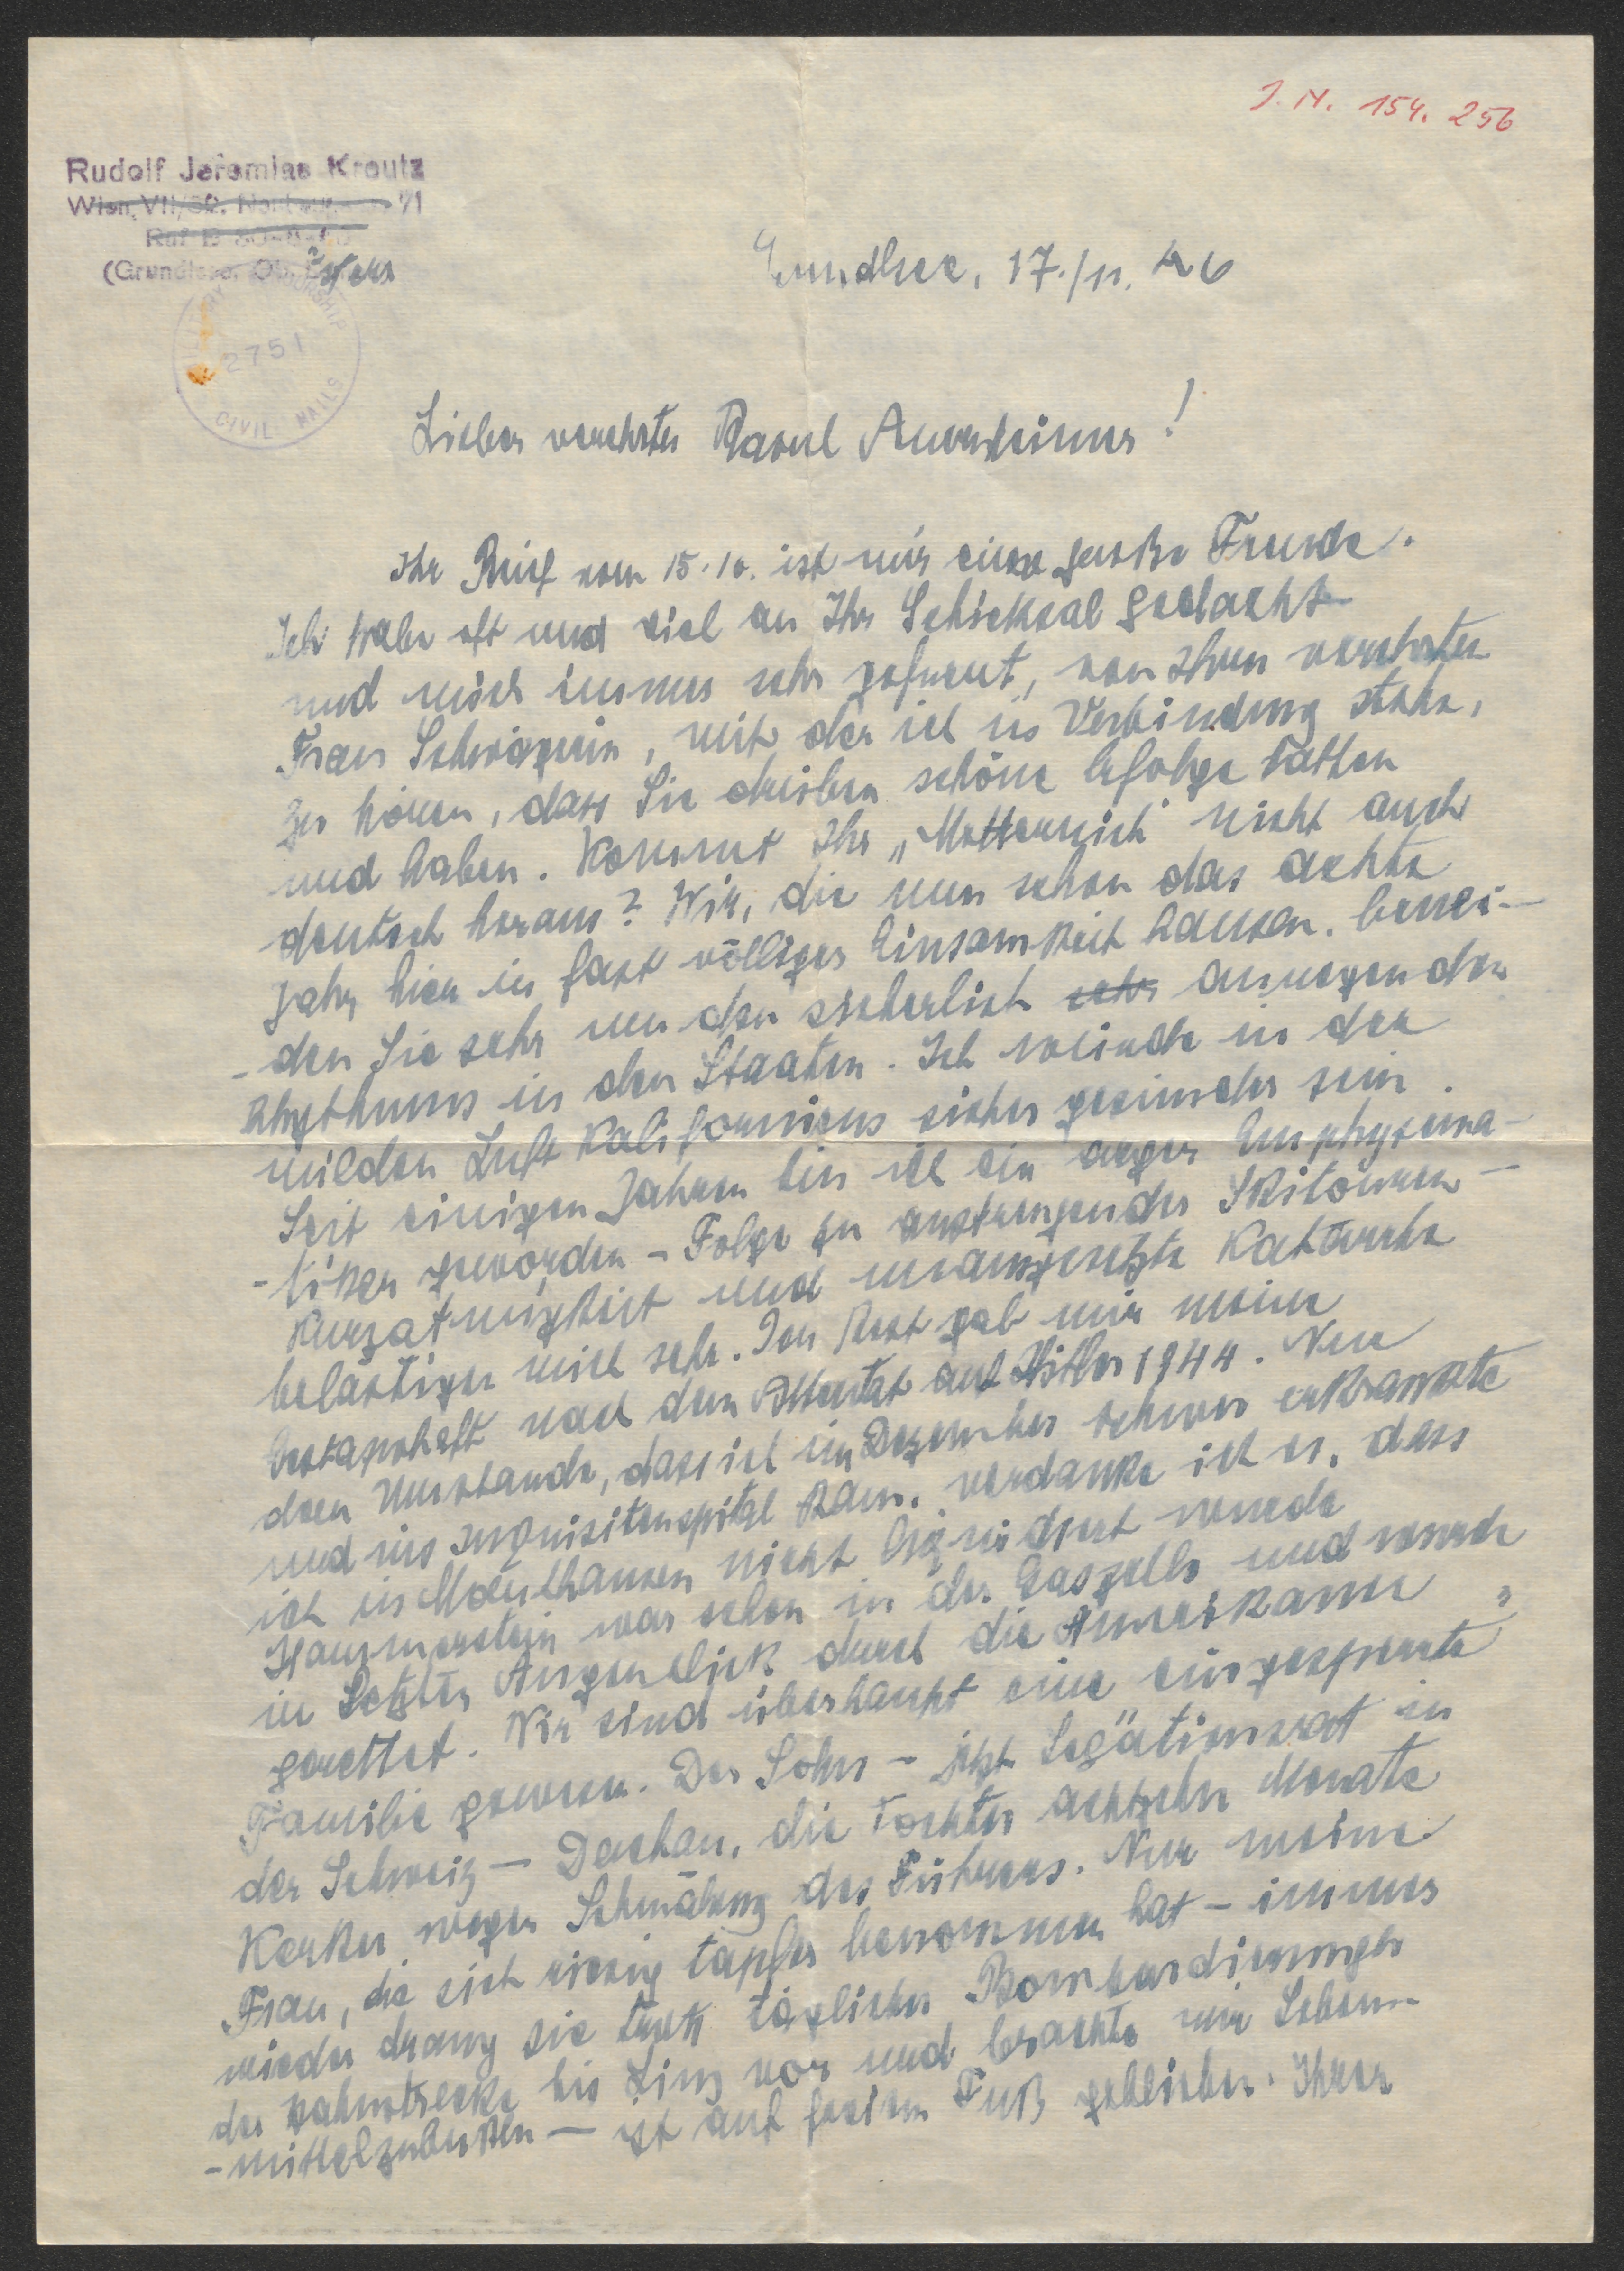 J. N. 154. 256
Rudolf Jeremias Kreutz
Wien, VII/62. 71
Ruf B
(Grundlsee, Ob.
2751
CIVIL MAILS
Grundlsee, 17./11. 46
Lieber verehrter Raoul Auernheimer!
Ihr Brief vom 15.10. ist mir eine große Freude.
Ich habe oft und viel an Ihr Schicksal gedacht
und mich immer sehr gefreut, von Ihrer verehrten
Frau Schwägerin, mit der ich in Verbindung stehe,
zu hören, dass Sie drüben schöne Erfolge hatten
und haben. Kommt Ihr „Metternich" nicht auch
deutsch heraus? Wir, die nun schon das achte
Jahr hier in fast völliger Einsamkeit hausen, benei-
-den Sie sehr um den sicherlich sehr anregenden
Rhythmus in den Staaten. Ich würde in der
milden Luft Kaliforniens sicher gesünder sein.
Seit einigen Jahren bin ich ein arger Emphysema-
-tiker geworden - Folge zu anstrengender Skitouren -
Kurzatmigkeit und unausgesetzte Katarrhe
belästigen mich sehr. Den Rest gab mir meine
Gestapohaft nach dem Attentat auf Hitler 1944. Nur
dem Umstande, dass ich im Dezember schwer erkrankte
und ins Inquisitenspital kam, verdanke ich es, dass
ich in Mauthausen nicht liquidiert wurde
Hammerstein war schon in der Gaszelle und wurde
im letzten Augenblick durch die Amerikaner
gerettet. Wir sind überhaupt eine „eingesperrte"
Familie gewesen. Der Sohn - jetzt Legationsrat in
der Schweiz - Dachau, die Tochter achtzehn Monate
Kerker wegen Schmähung des Führers. Nur meine
Frau, die sich riesig tapfer benommen hat - immer
wieder drang sie trotz täglicher Bombardierungen
der Bahnstrecke bis Linz vor und brachte mir Lebens-
-mittelzubußen - ist auf freiem Fuß geblieben. Ihrer